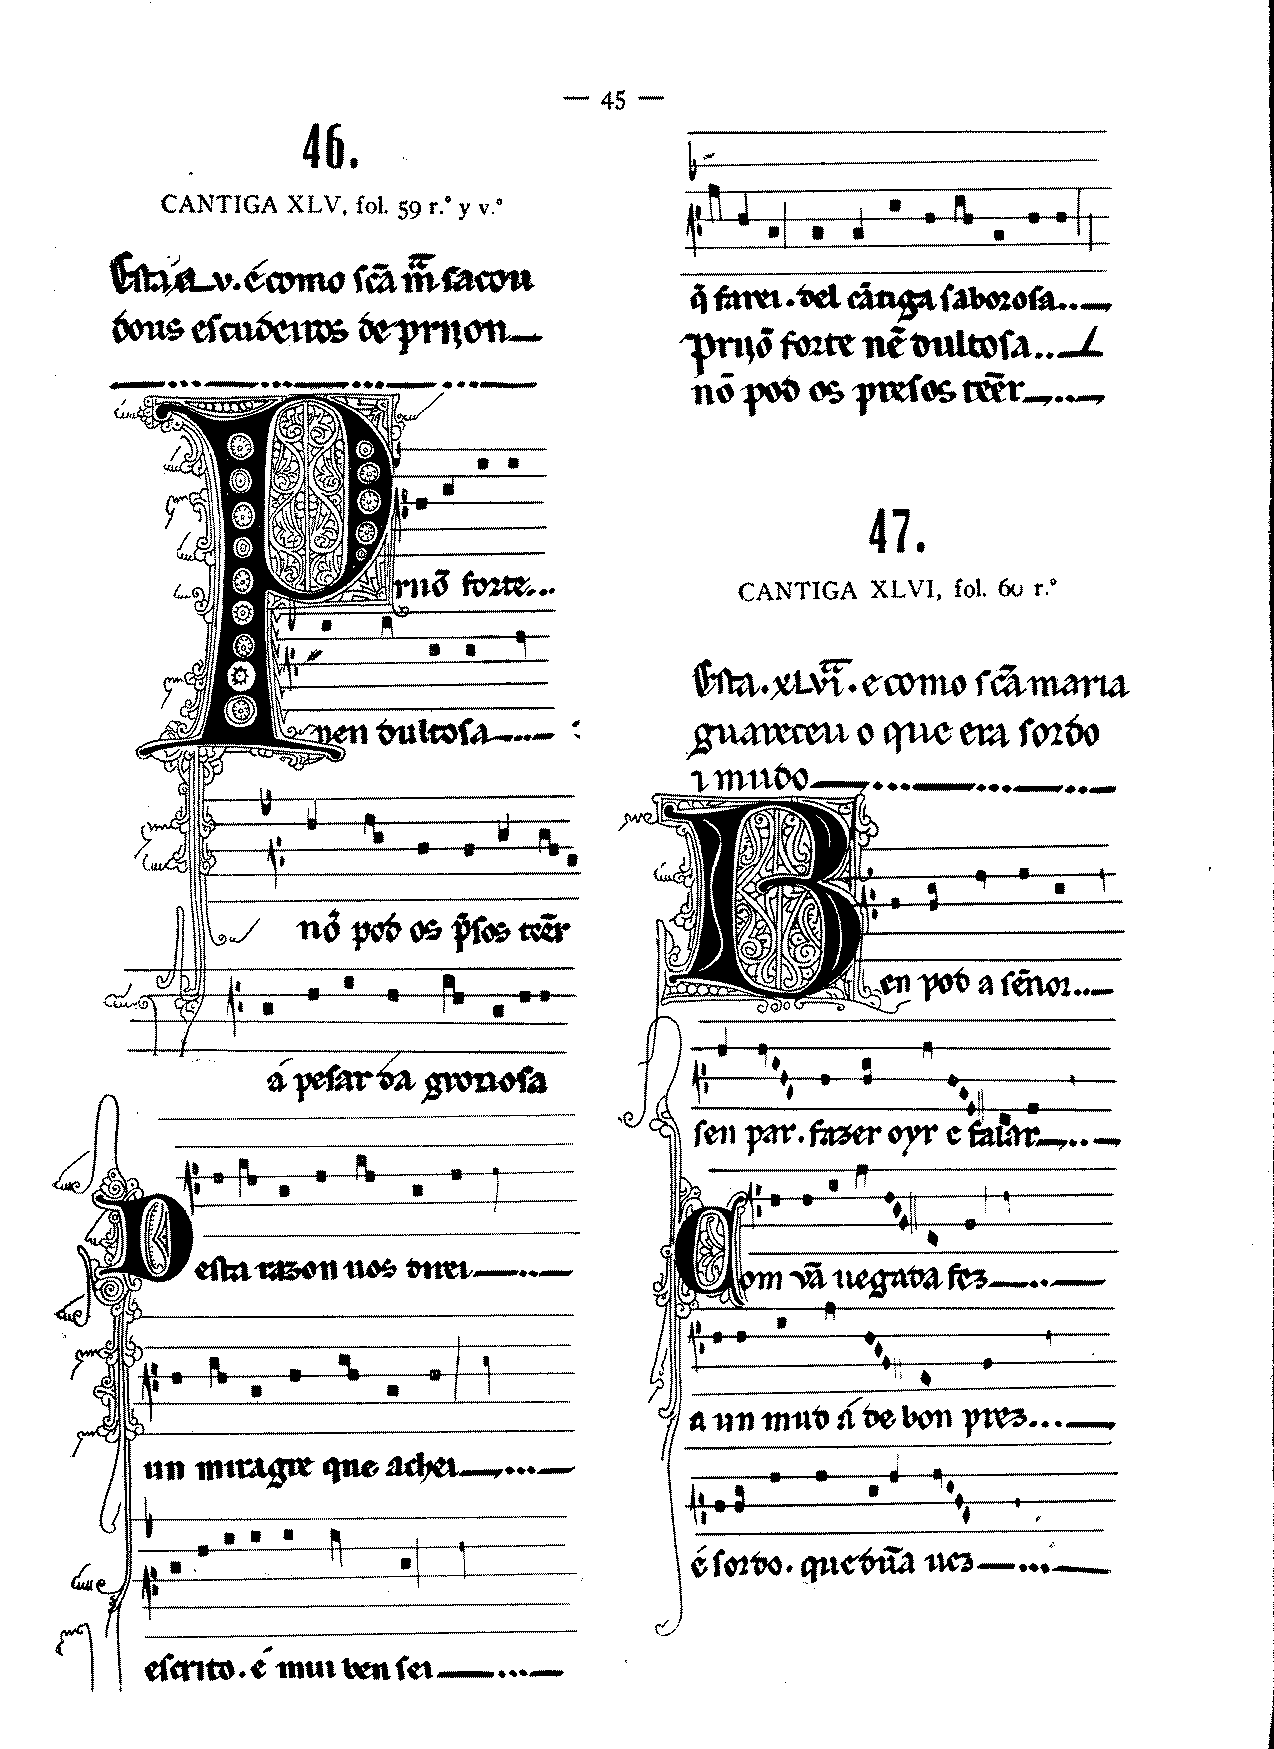 — 45 —
46.
CANTIGA XLV, fol. 59 r.º y v.º
Esta é v. é como sc̃a m̃ sacou
dous escudeiros de prijon
Prijõ forte...
nen dultosa
nõ pod os p̃sos tẽer
á pesar da groriosa
Desta razon uos direi
un miragre que achei
escrito. é mui ben sei
q̃ farei. del cãtiga saborosa..
Prijõ forte nẽ dultosa..
nõ pod os presos tẽer
47.
CANTIGA XLVI, fol. 60 r.º
Esta. xLvĩ. e como sc̃a maria
guareceu o que era sordo
ı mudo
Ben pod a sẽnor..
sen par. fazer oyr e falar
Com ũa uegada fez
a un mud á de bon prez...
é sordo. que dũa uez